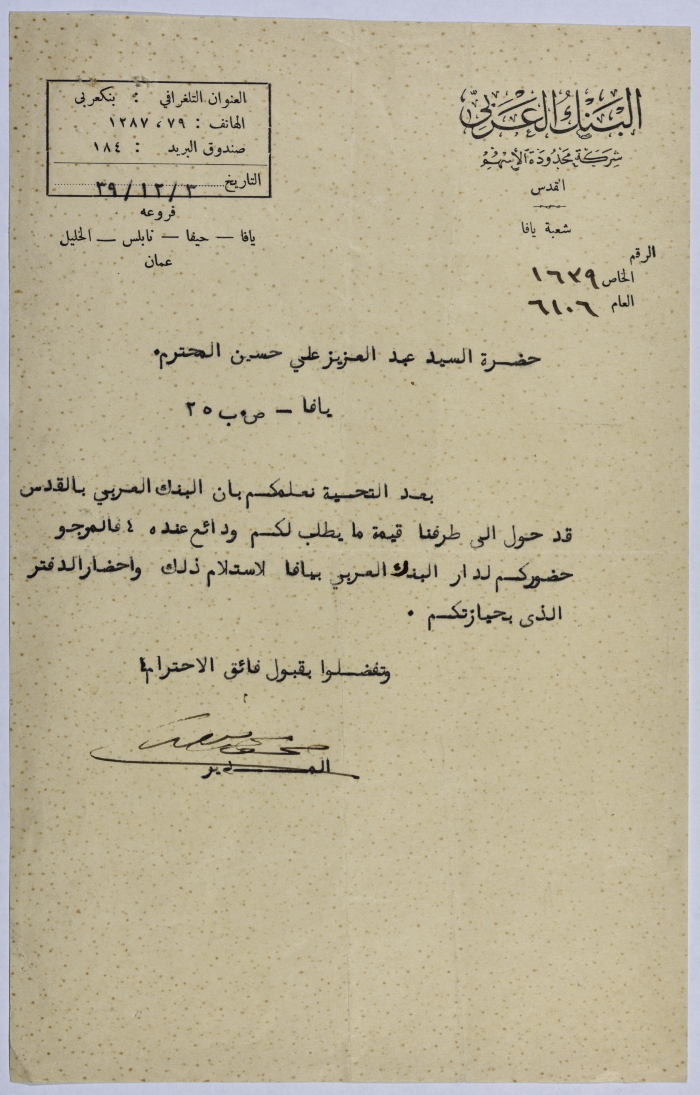 البنك العربي
شركة محدودة الأسهم
القدس
شعبة يافا
الرقم
الخاص ١٦٣٩
العام ٦١٠٦
العنوان التلغرافي : بنكعربى
الهاتف : ٧٩ ، ١٢٨٧
صندوق البريد : ١٨٤
التاريخ ٣٩/١٢/٣
فروعه
يافا — حيفا — نابلس — الخليل
عمان
حضرة السيد عبد العزيز علي حسين المحترم.
يافا — ص.ب ٢٥
بعد التحية نعلمكم بان البنك العربي بالقدس
قد حول الى طرفنا قيمة ما يطلب لكم ودائع عنده فالمرجو
حضوركم لدار البنك العربي بيافا لاستلام ذلك واحضار الدفتر
الذى بحيازتكم .
وتفضلوا بقبول فائق الاحترام
المدير